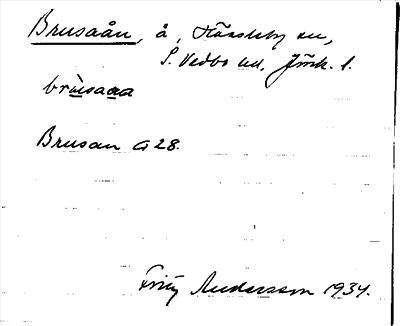 Brusaån, å, Hässleby sn,
S. Vedbo hd, Jönk. l.
brùsaaa
Brusan G 28.
Fritz Andersson 1934.